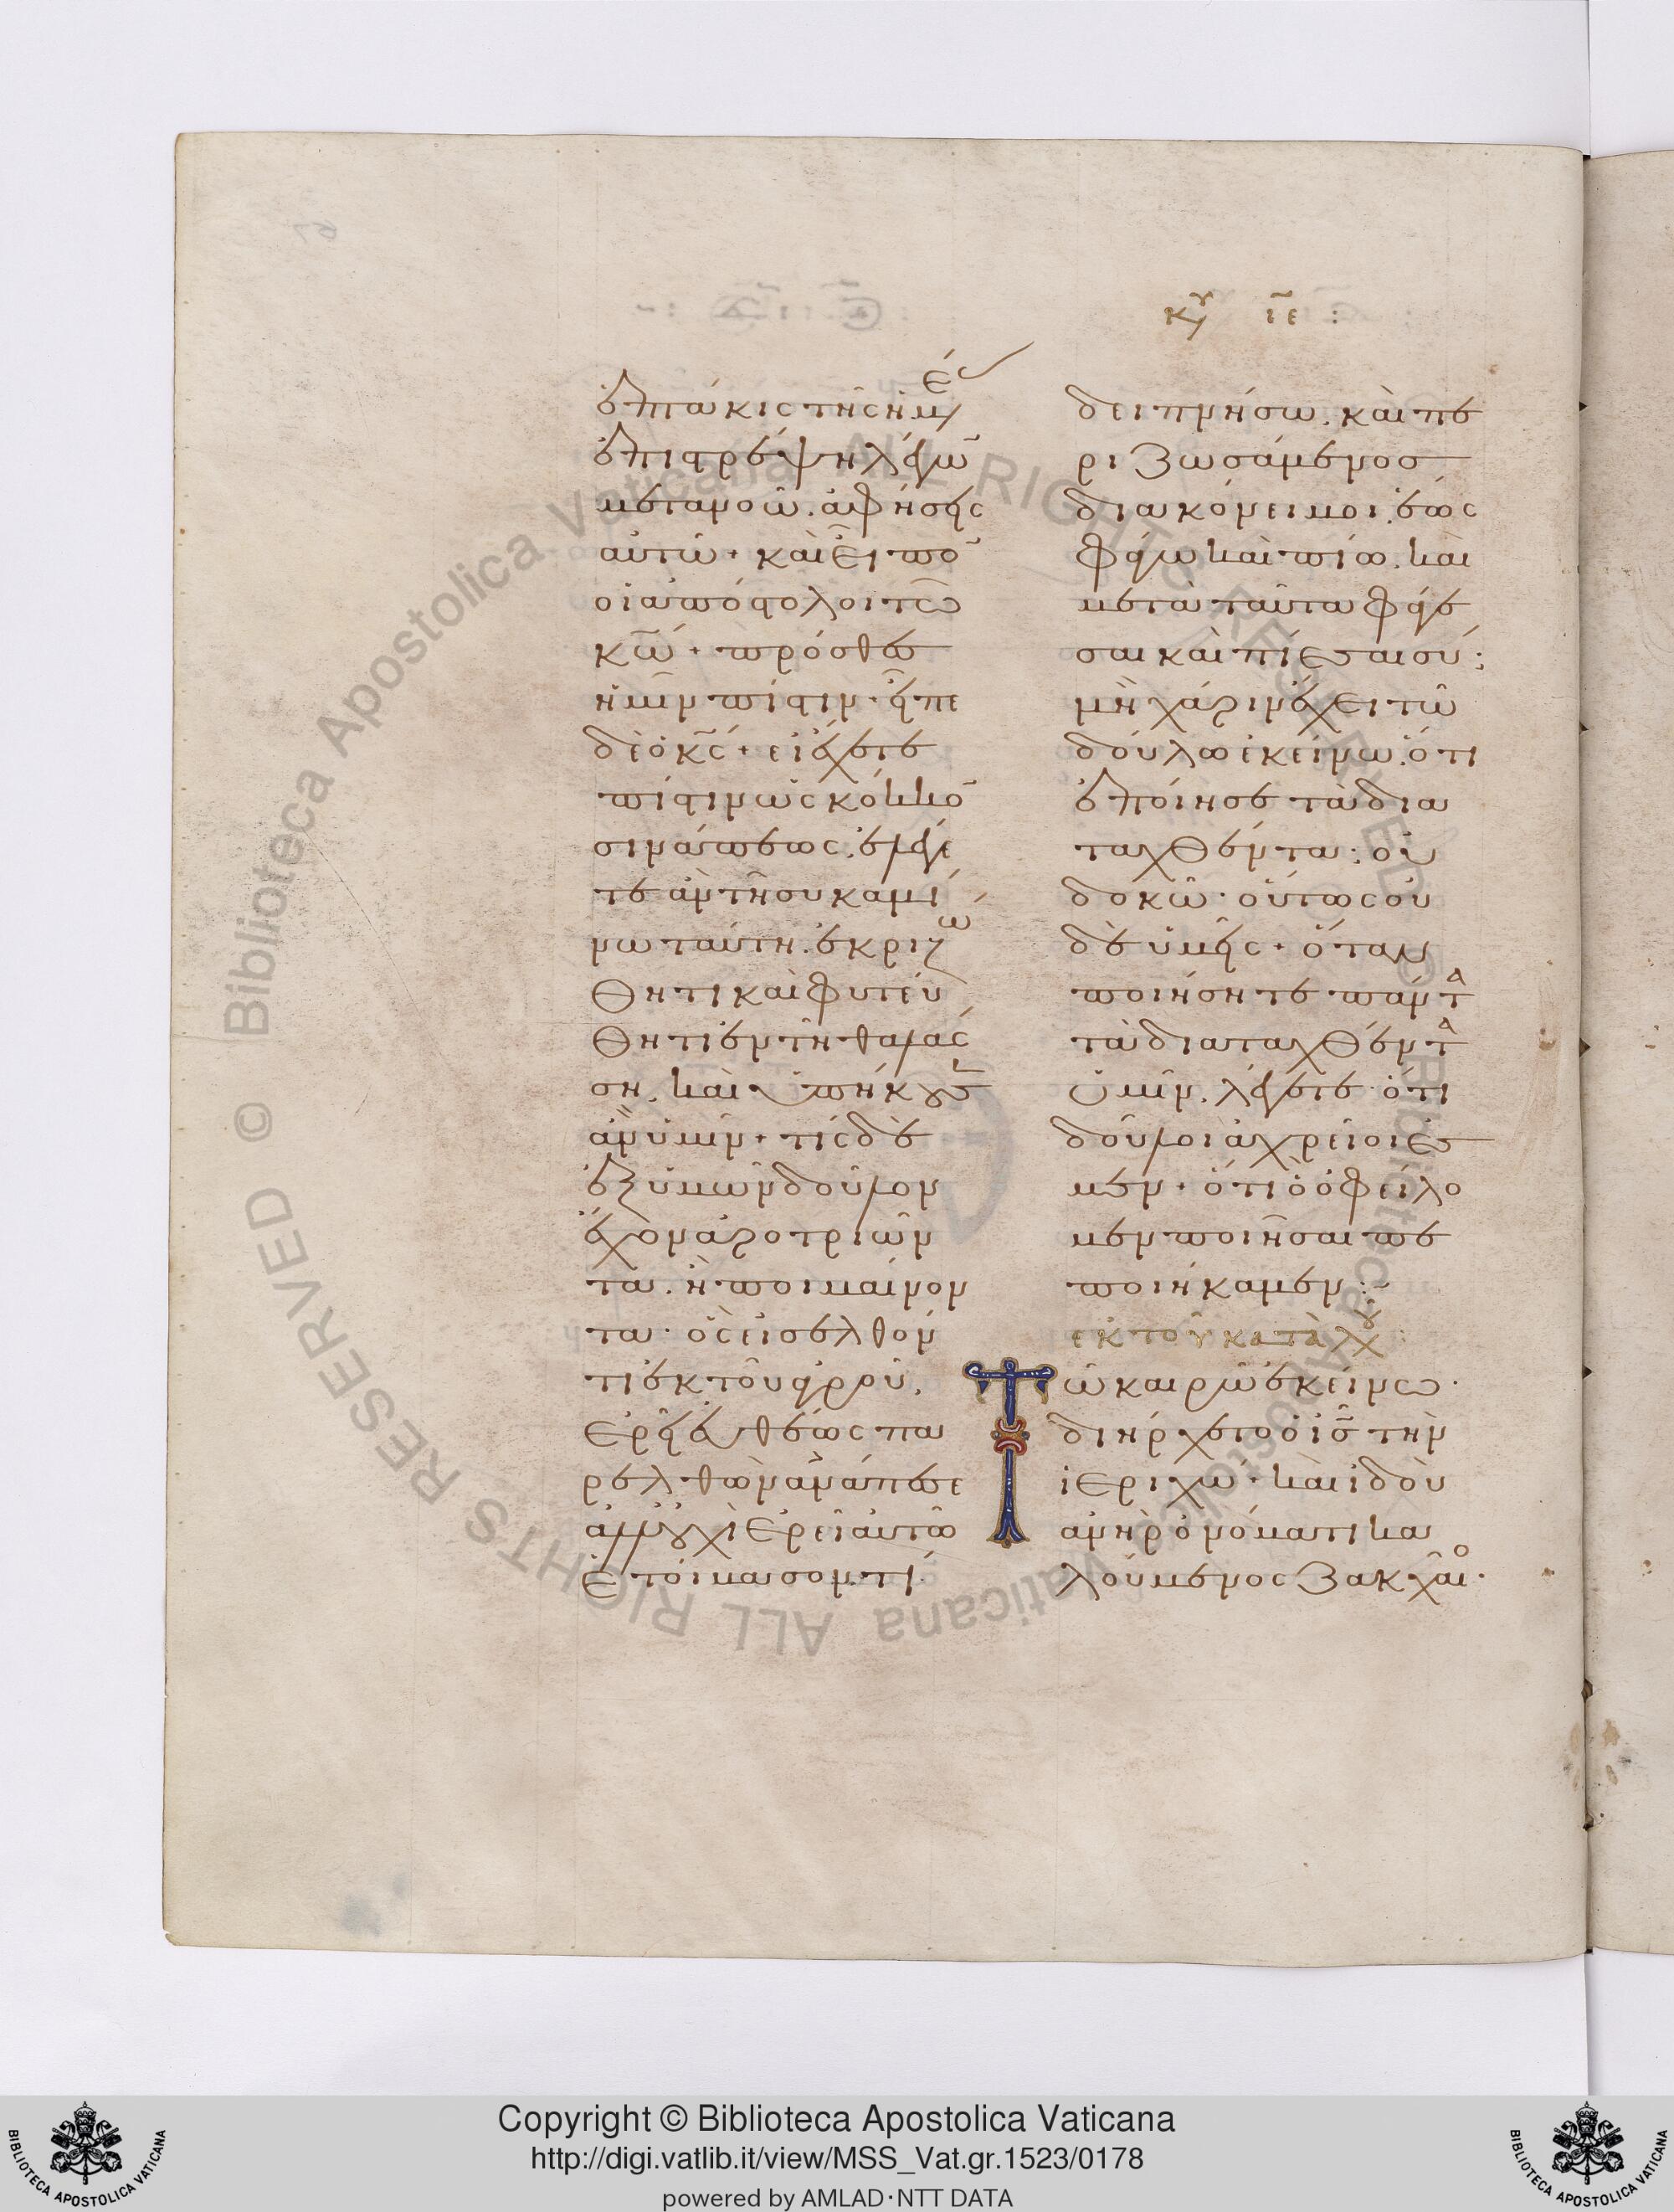 κυ ιε :
ἑπτάκις τῆς ἡμέ
ἐπιστρέψη λέγων
μετανοῶ. ἀφήσεις
αὐτῶ + καὶ εἶπον
οἱ ἀπόστολοι τῶ
κ̅ω̅ + πρόσθες
ἡμῖν πίστιν. εἶπε
δὲ ὁ κ̅ς̅ + εἰ ἔχετε
πίστιν ὡς κόκκον
σινάπεως. ἐλέγε
τε ἂν τῆ συκαμί
νω ταύτη. ἐκριζώ
θητι καὶ φυτεύ
θητι ἐν τῆ θαλάσ
ση. καὶ ὑπήκουσεν
ἂν ὑμῖν + τίς δὲ
ἐξ ὑμῶν δοῦλον
ἔχον ἀροτριῶν
τα. ἢ ποιμαίνον
τα. ὃς εἰσελθόν
τι ἐκ τοῦ ἀγροῦ.
ἐρεῖ εὐθέως πα
ρελθὼν ἀνάπεσε
ἀλλ' οὐχὶ ἐρεῖ αὐτῶ
ἑτοίμασον τί
δειπνήσω. καὶ πε
ριζωσάμενος
διακόνει μοι. ἕως
φάγω καὶ πίω. καὶ
μετὰ ταῦτα φάγε
σαι καὶ πίεσαι σύ :
μὴ χάριν ἔχει τῶ
δούλω ἐκείνω. ὅτι
ἐποίησε τὰ δια
ταχθέντα : οὐ
δοκῶ. οὕτως οὖ
δὲ ὑμεῖς + ὅταν
ποιήσητε πάντα
τὰ διαταχθέντα
ὑμῖν. λέγετε ὅτι
δοῦλοι ἀχρεῖοι ἐσ
μέν + ὅτι ὃ ὀφείλο
μεν ποιῆσαι πε
ποιήκαμεν :~
ἐκ τοῦ κατὰ λου :
Τῶ καιρῶ ἐκείνω.
διήρχετο ὁ ι̅ς̅ τὴν
ἱεριχώ. καὶ ἰδοὺ
ἀνὴρ ὀνόματι κα
λούμενος ζακχαῖο.
Copyright © Biblioteca Apostolica Vaticana
http://digi.vatlib.it/view/MSS_Vat.gr.1523/0178
powered by AMLAD·NTT DATA
BIBLIOTECA APOSTOLICA VATICANA
BIBLIOTECA APOSTOLICA VATICANA
© Biblioteca Apostolica Vaticana ALL RIGHTS RESERVED
© Biblioteca Apostolica Vaticana ALL RIGHTS RESERVED